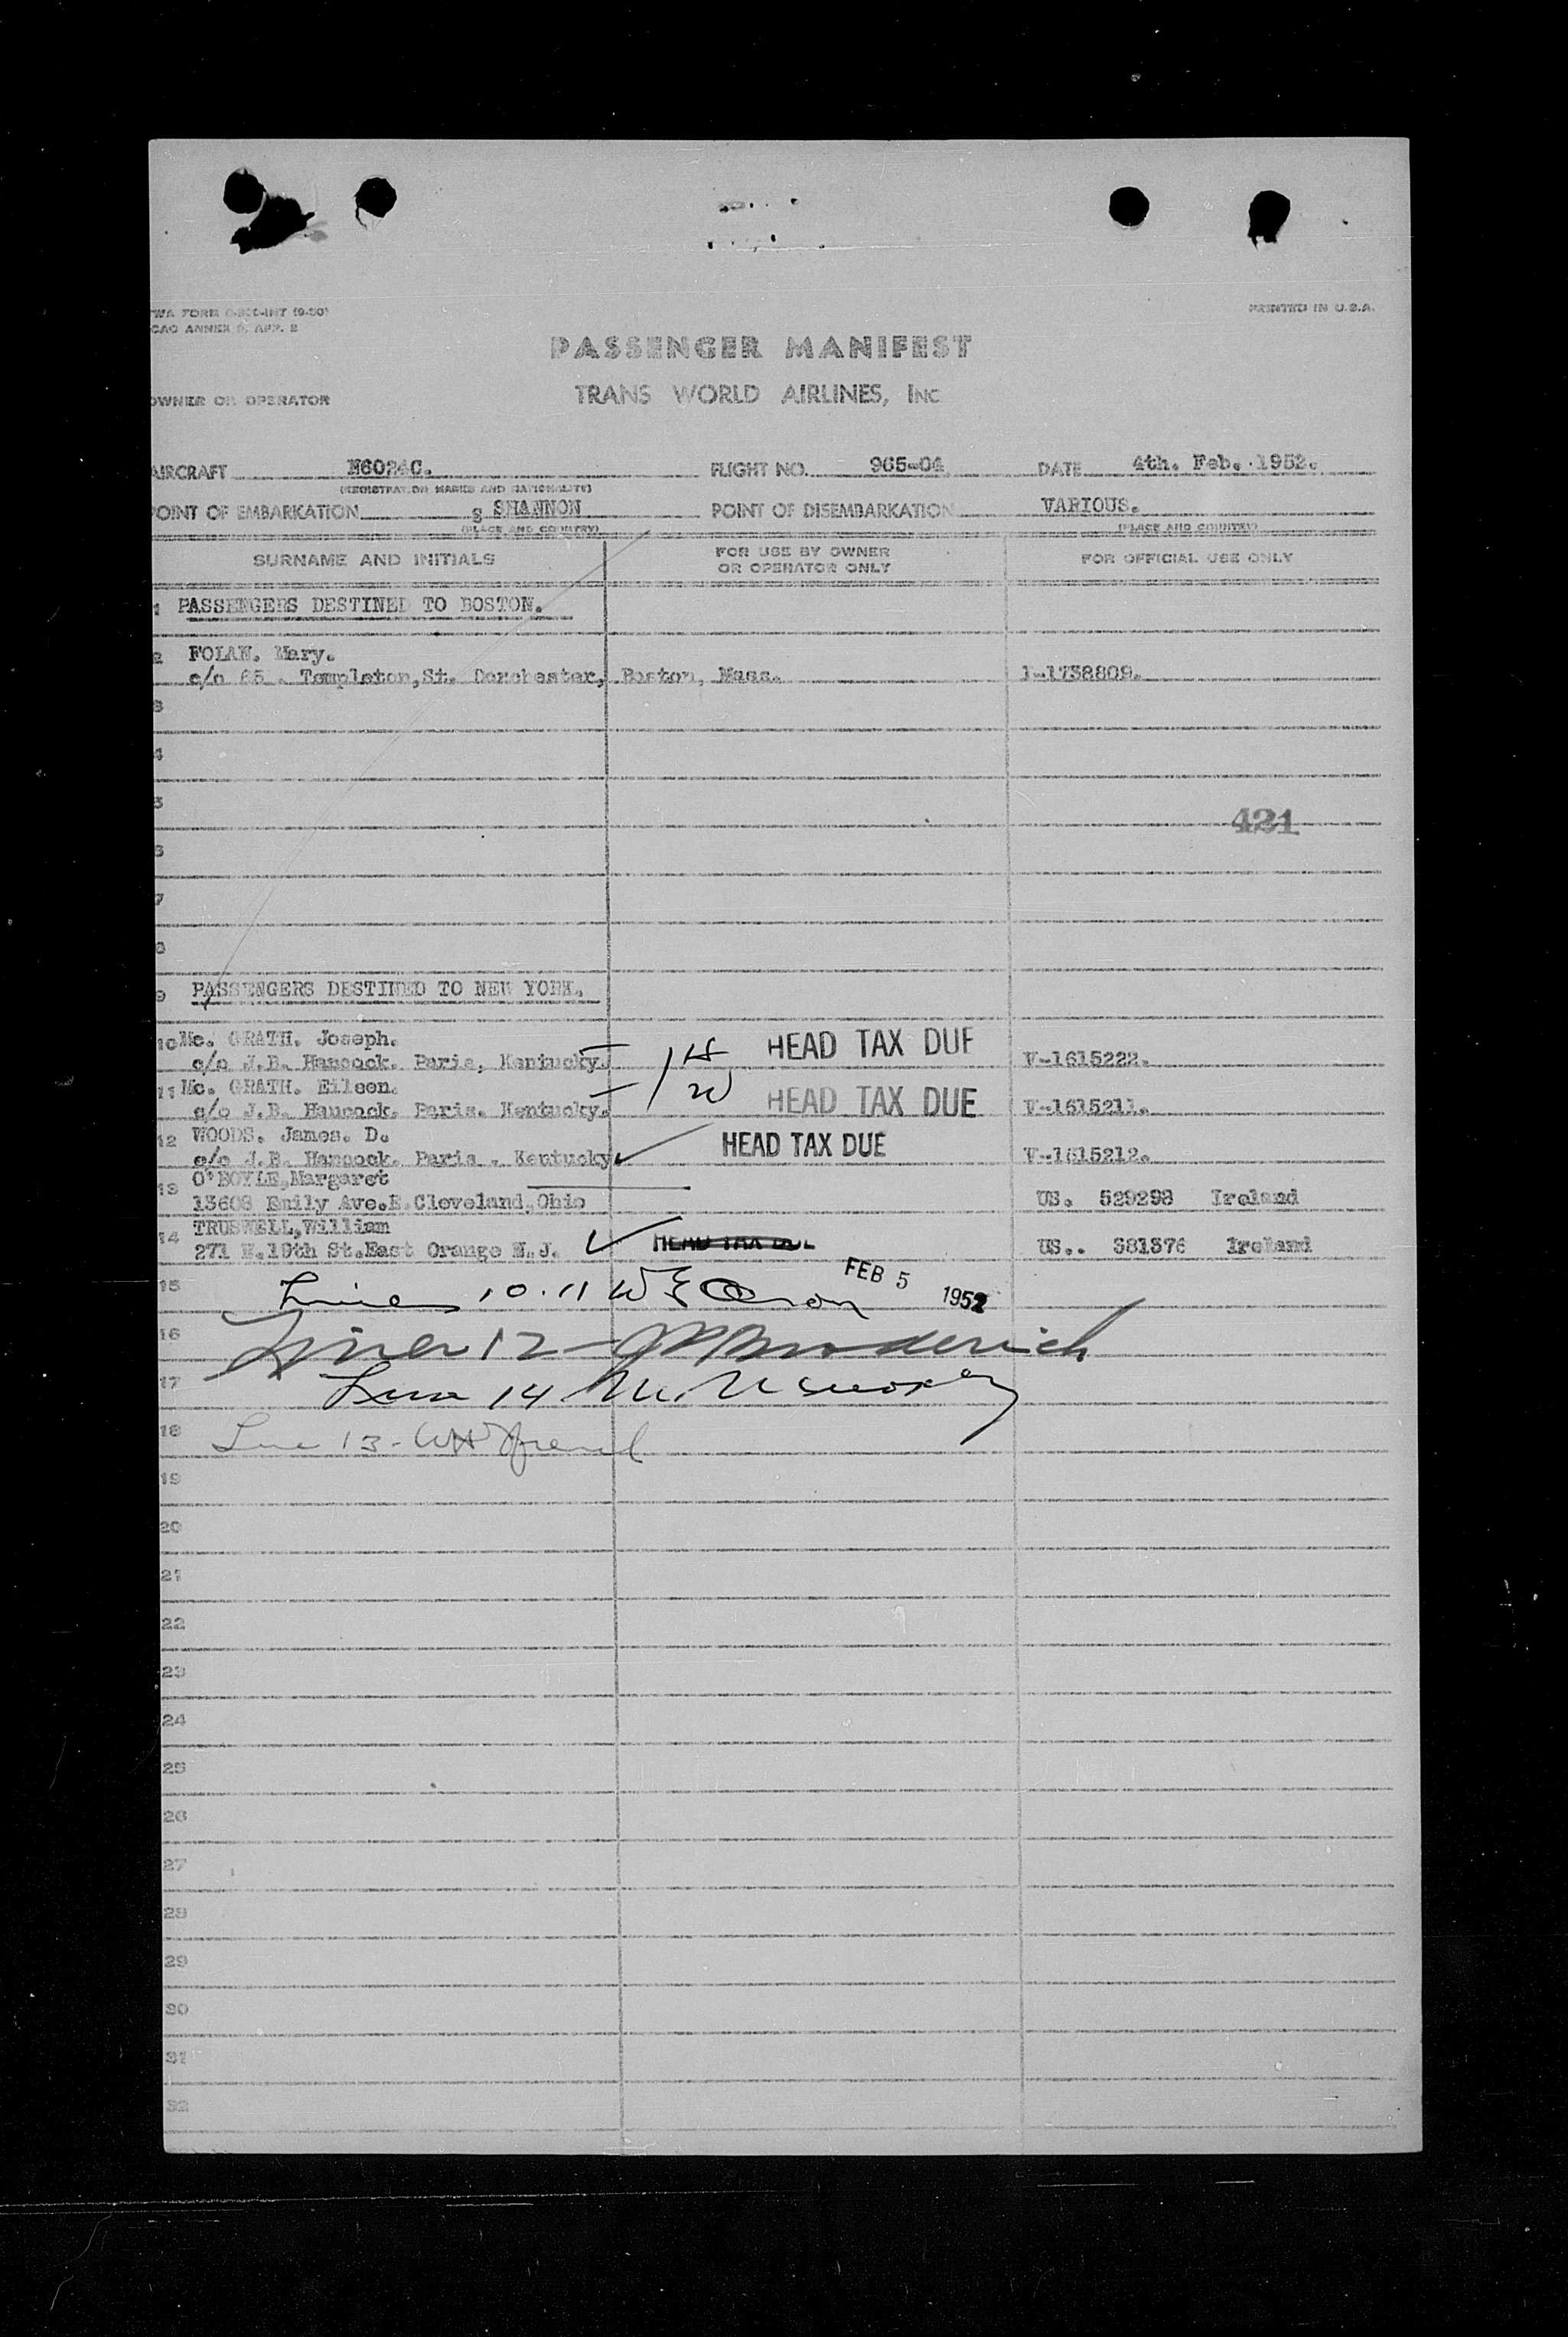 PRINTED IN U.S.A.
PASSENGER MANIFEST
OWNER OR OPERATOR
TRANS WORLD AIRLINES, INC
AIRCRAFT N6024C. FLIGHT NO. 965-04 DATE 4th. Feb. 1952.
(REGISTRATION MARKS AND NATIONALITY)
POINT OF EMBARKATION SHANNON POINT OF DISEMBARKATION VARIOUS.
(PLACE AND COUNTRY) (PLACE AND COUNTRY)
SURNAME AND INITIALS FOR USE BY OWNER OR OPERATOR ONLY FOR OFFICIAL USE ONLY
1 PASSENGERS DESTINED TO BOSTON.
2 FOLAN. Mary.
c/o 65 . Templeton,St. Dorchester, Boston, Mass. I-1738809.
3
4
5
421
6
7
8
9 PASSENGERS DESTINED TO NEW YORK.
10 Mc. GRATH. Joseph.
c/o J.B. Hancock. Paris, Kentucky. HEAD TAX DUE V-1615222.
11 Mc. GRATH. Eileen.
c/o J.B. Hancock. Paris. Kentucky. HEAD TAX DUE V-1615211.
12 WOODS. James. D.
c/o J.B. Hancock. Paris . Kentucky HEAD TAX DUE V-1615212.
13 O'BOYLE,Margaret
13608 Emily Ave.E.Cleveland,Ohio US. 529298 Ireland
14 TRUSWELL,William
271 N.19th St.East Orange N.J. HEAD TAX DUE US.. 381376 Ireland
15 Lines 10.11 FEB 5 1952
16 Line 12
17 Line 14
18 Line 13-
19
20
21
22
23
24
25
26
27
28
29
30
31
32